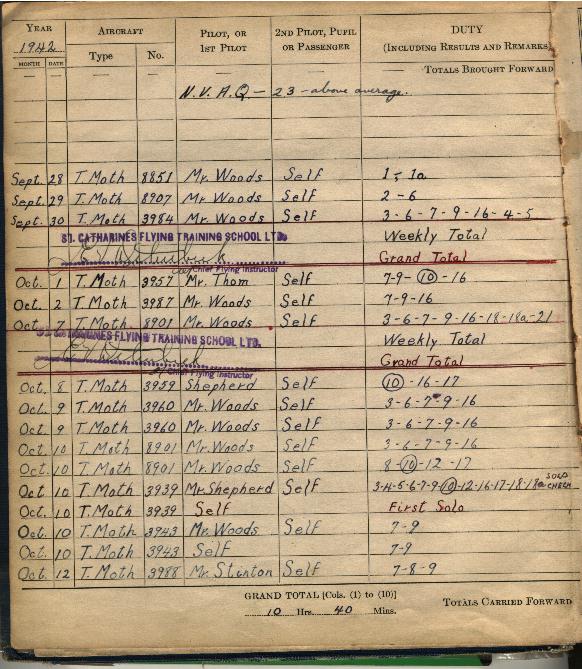 YEAR 1942 AIRCRAFT PILOT, OR 1ST PILOT 2ND PILOT, PUPIL OR PASSENGER DUTY (INCLUDING RESULTS AND REMARKS)
MONTH DATE Type No.
— — — — — TOTALS BROUGHT FORWARD
N.V.A.Q — 23 - above average.
Sept. 28 T. Moth 8851 Mr. Woods Self 1, 1a
Sept. 29 T. Moth 8907 Mr. Woods Self 2 - 6
Sept. 30 T. Moth 3984 Mr. Woods Self 3-6-7-9-16-4-5
ST. CATHARINES FLYING TRAINING SCHOOL LTD. Weekly Total
Grand Total
Chief Flying Instructor
Oct. 1 T. Moth 3957 Mr. Thom Self 7-9-10-16
Oct. 2 T. Moth 3987 Mr. Woods Self 7-9-16
Oct. 7 T. Moth 8901 Mr. Woods Self 3-6-7-9-16-18-18a-21
ST. CATHARINES FLYING TRAINING SCHOOL LTD. Weekly Total
Grand Total
Chief Flying Instructor
Oct. 8 T. Moth 3959 Shepherd Self 10-16-17
Oct. 9 T. Moth 3960 Mr. Woods Self 3-6-7-9-16
Oct. 9 T. Moth 3960 Mr. Woods Self 3-6-7-9-16
Oct. 10 T. Moth 8901 Mr. Woods Self 3-6-7-9-16
Oct. 10 T. Moth 8901 Mr. Woods Self 8-10-12-17
Oct. 10 T. Moth 3939 Mr. Shepherd Self 3-4-5-6-7-9-10-12-16-17-18-18a SOLO CHECK
Oct. 10 T. Moth 3939 Self First Solo
Oct. 10 T. Moth 3943 Mr. Woods Self 7-9
Oct. 10 T. Moth 3943 Self 7-9
Oct. 12 T. Moth 3988 Mr. Stinton Self 7-8-9
GRAND TOTAL [Cols. (1) to (10)]
10 Hrs. 40 Mins. TOTALS CARRIED FORWARD